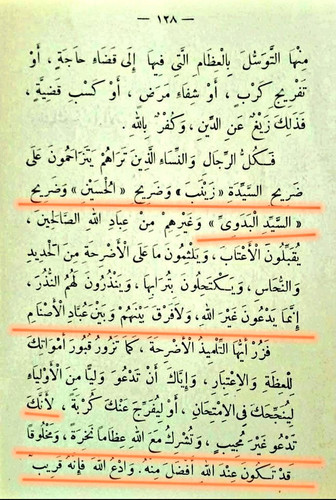 — ١٢٨ —
مِنْهَا التَّوَسُّلَ بِالْعِظَامِ الَّتِي فِيهَا إِلَى قَضَاءِ حَاجَةٍ ، أَوْ
تَفْرِيجِ كَرْبٍ ، أَوْ شِفَاءِ مَرَضٍ ، أَوْ كَسْبِ قَضِيَّةٍ ،
فَذَلِكَ زَيْغٌ عَنِ الدِّينِ ، وَكُفْرٌ بِاللهِ .
فَكُلُّ الرِّجَالِ وَالنِّسَاءِ الَّذِينَ تَرَاهُمْ يَتَزَاحَمُونَ عَلَى
ضَرِيحِ السَّيِّدَةِ « زَيْنَبَ » وَضَرِيحِ « الْحُسَيْنِ » وَضَرِيحِ
« السَّيِّدِ الْبَدَوِيِّ » وَغَيْرِهِمْ مِنْ عِبَادِ اللهِ الصَّالِحِينَ ،
يُقَبِّلُونَ الْأَعْتَابَ ، وَيَلْثِمُونَ مَا عَلَى الْأَضْرِحَةِ مِنَ الْحَدِيدِ
وَالنُّحَاسِ ، وَيَكْتَحِلُونَ بِتُرَابِهَا ، وَيَنْذُرُونَ لَهُمُ النُّذُرَ ،
إِنَّمَا يَدْعُونَ غَيْرَ اللهِ ، وَلَا فَرْقَ بَيْنَهُمْ وَبَيْنَ عُبَّادِ الْأَصْنَامِ
فَزُرْ أَيُّهَا التِّلْمِيذُ الْأَضْرِحَةَ ، كَمَا تَزُورُ قُبُورَ أَمْوَاتِكَ
لِلْعِظَةِ وَالِاعْتِبَارِ ، وَإِيَّاكَ أَنْ تَدْعُوَ وَلِيًّا مِنَ الْأَوْلِيَاءِ
لِيُنْجِحَكَ فِي الِامْتِحَانِ ، أَوْ لِيُفَرِّجَ عَنْكَ كُرْبَةً ، لِأَنَّكَ
تَدْعُو غَيْرَ مُجِيبٍ ، وَتُشْرِكُ مَعَ اللهِ عِظَامًا نَخِرَةً ، وَمَخْلُوقًا
قَدْ تَكُونُ عِنْدَ اللهِ أَفْضَلَ مِنْهُ . وَادْعُ اللهَ فَإِنَّهُ قَرِيبٌ